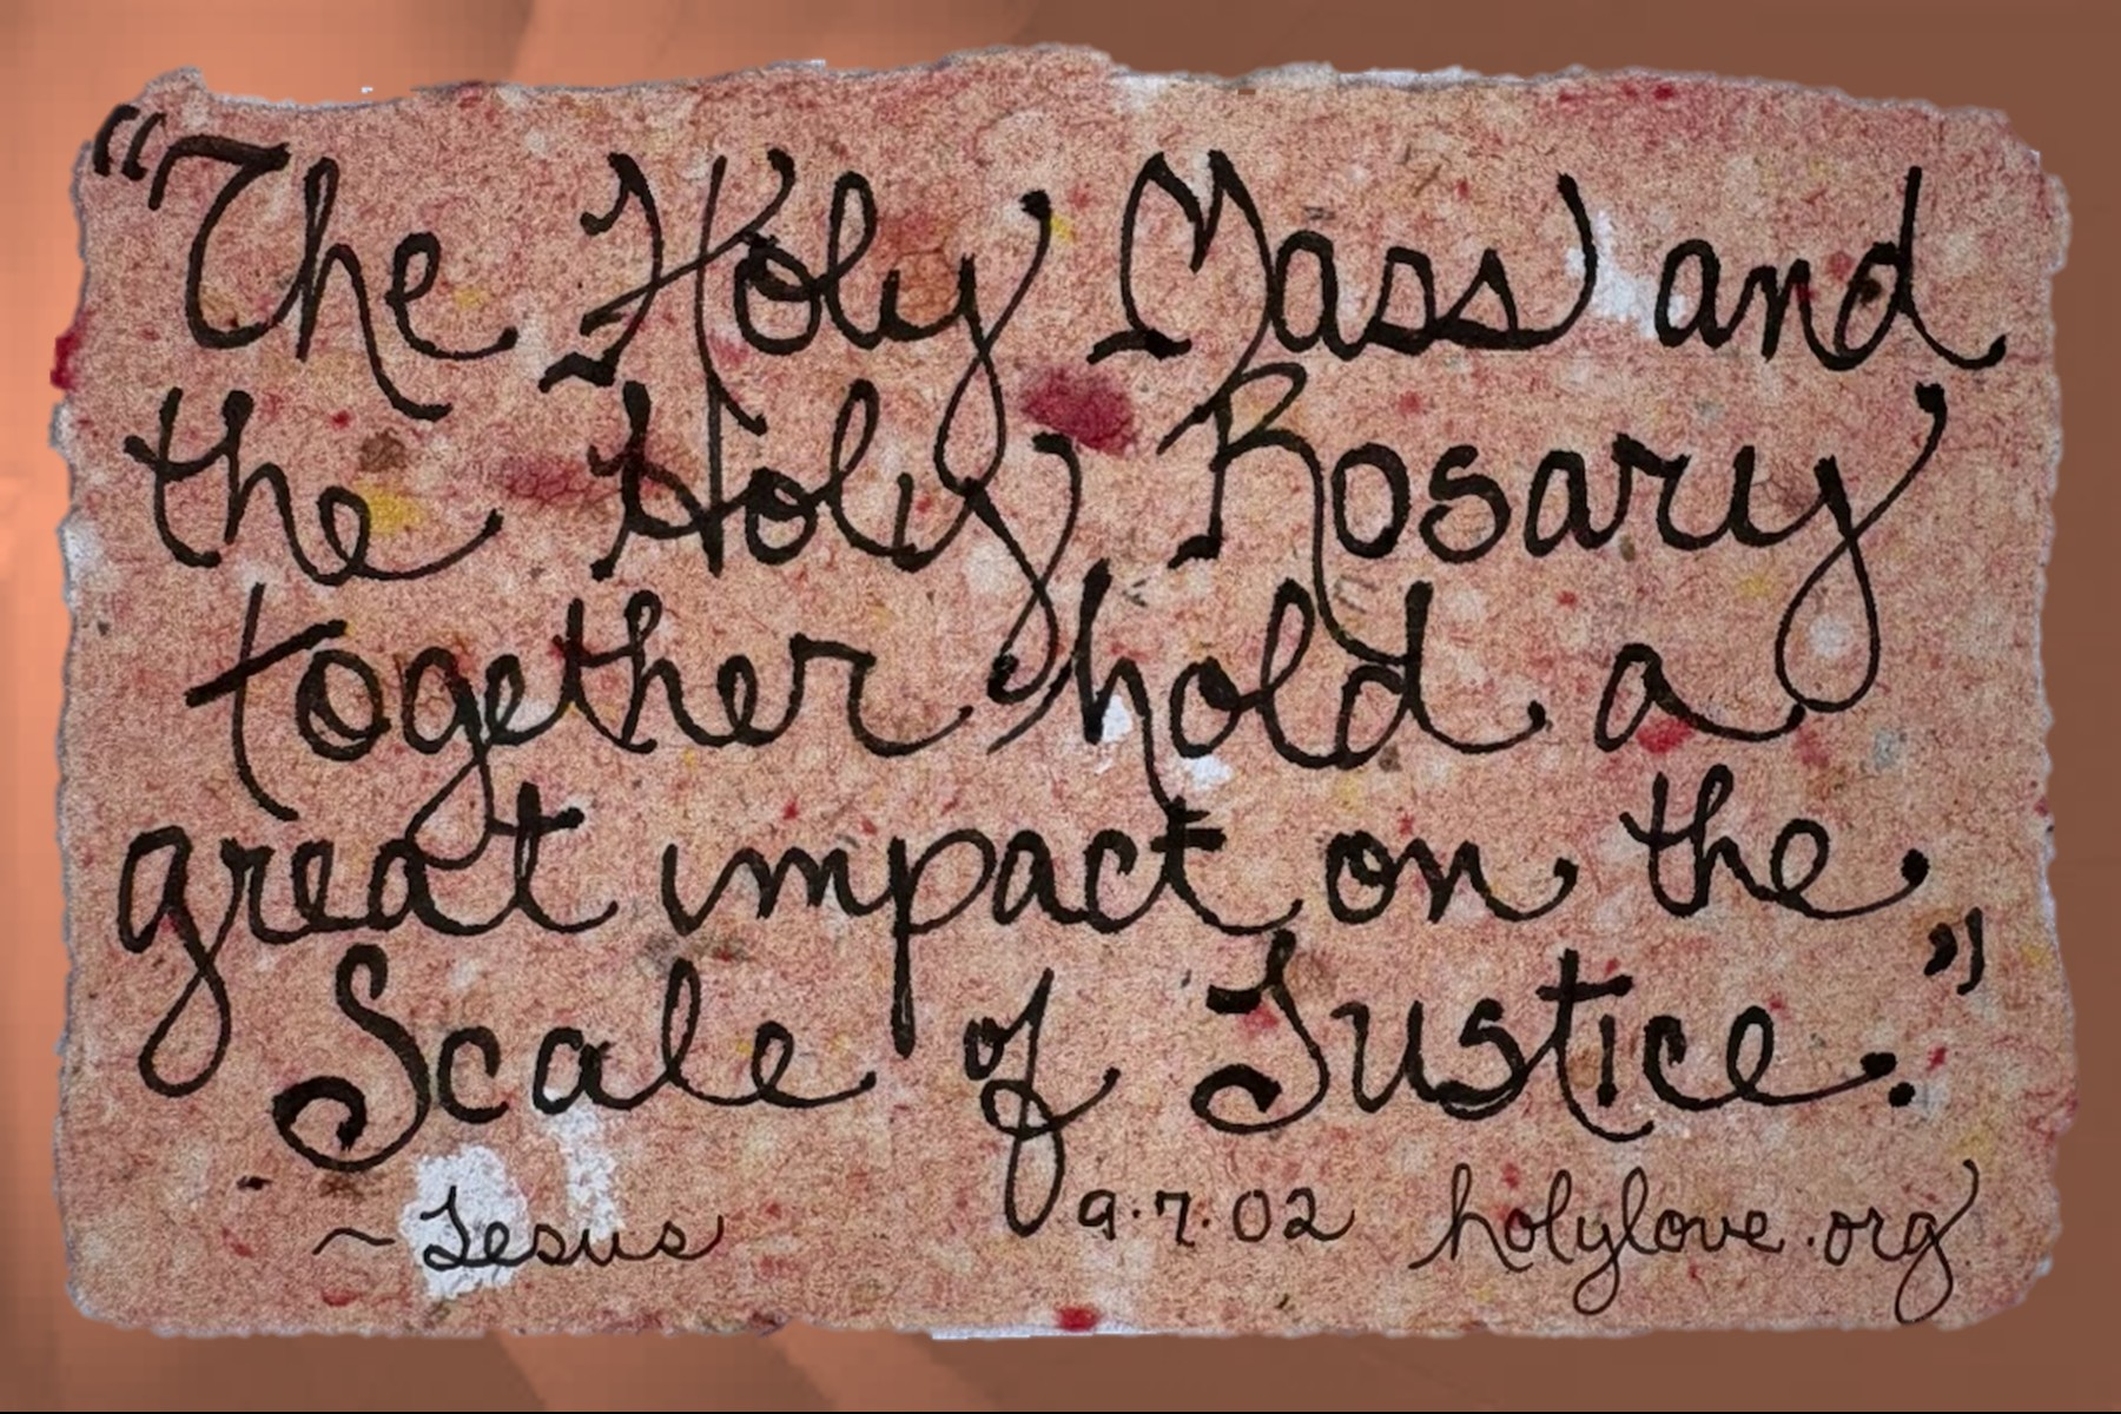 "The Holy Mass and
the Holy Rosary
together hold a
great impact on the
Scale of Justice."
~Jesus 9.7.02 holylove.org